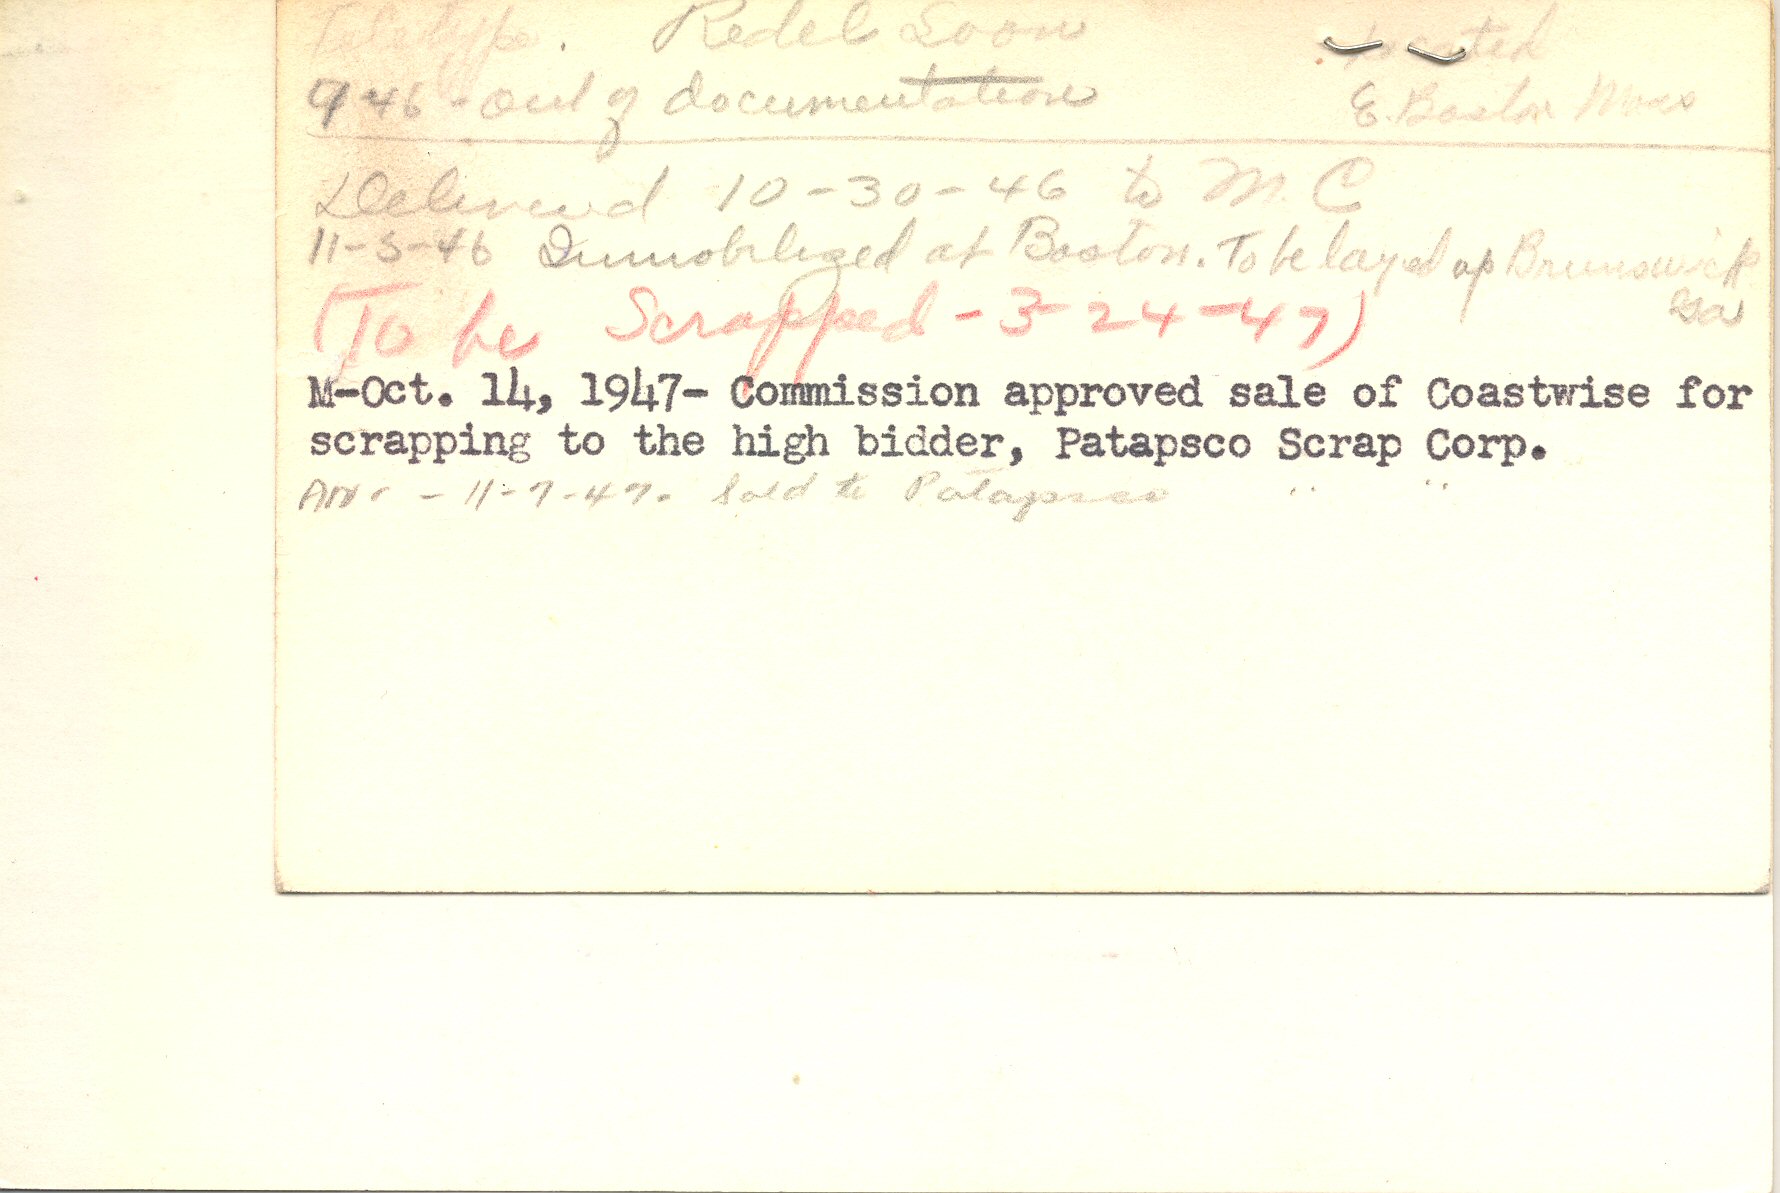 Teletype. Redel Soon Located
9-46 - out of documentation E. Boston Mass
Delivered 10-30-46 to M. C
11-5-46 Immobilized at Boston. To be layed up Brunswick
Ga
(To be Scrapped - 3-24-47)
M-Oct. 14, 1947- Commission approved sale of Coastwise for
scrapping to the high bidder, Patapsco Scrap Corp.
- 11-7-47. Sold to Patapsco " "